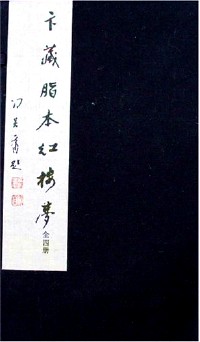 卞藏脂本红楼梦
全四册
冯其庸题